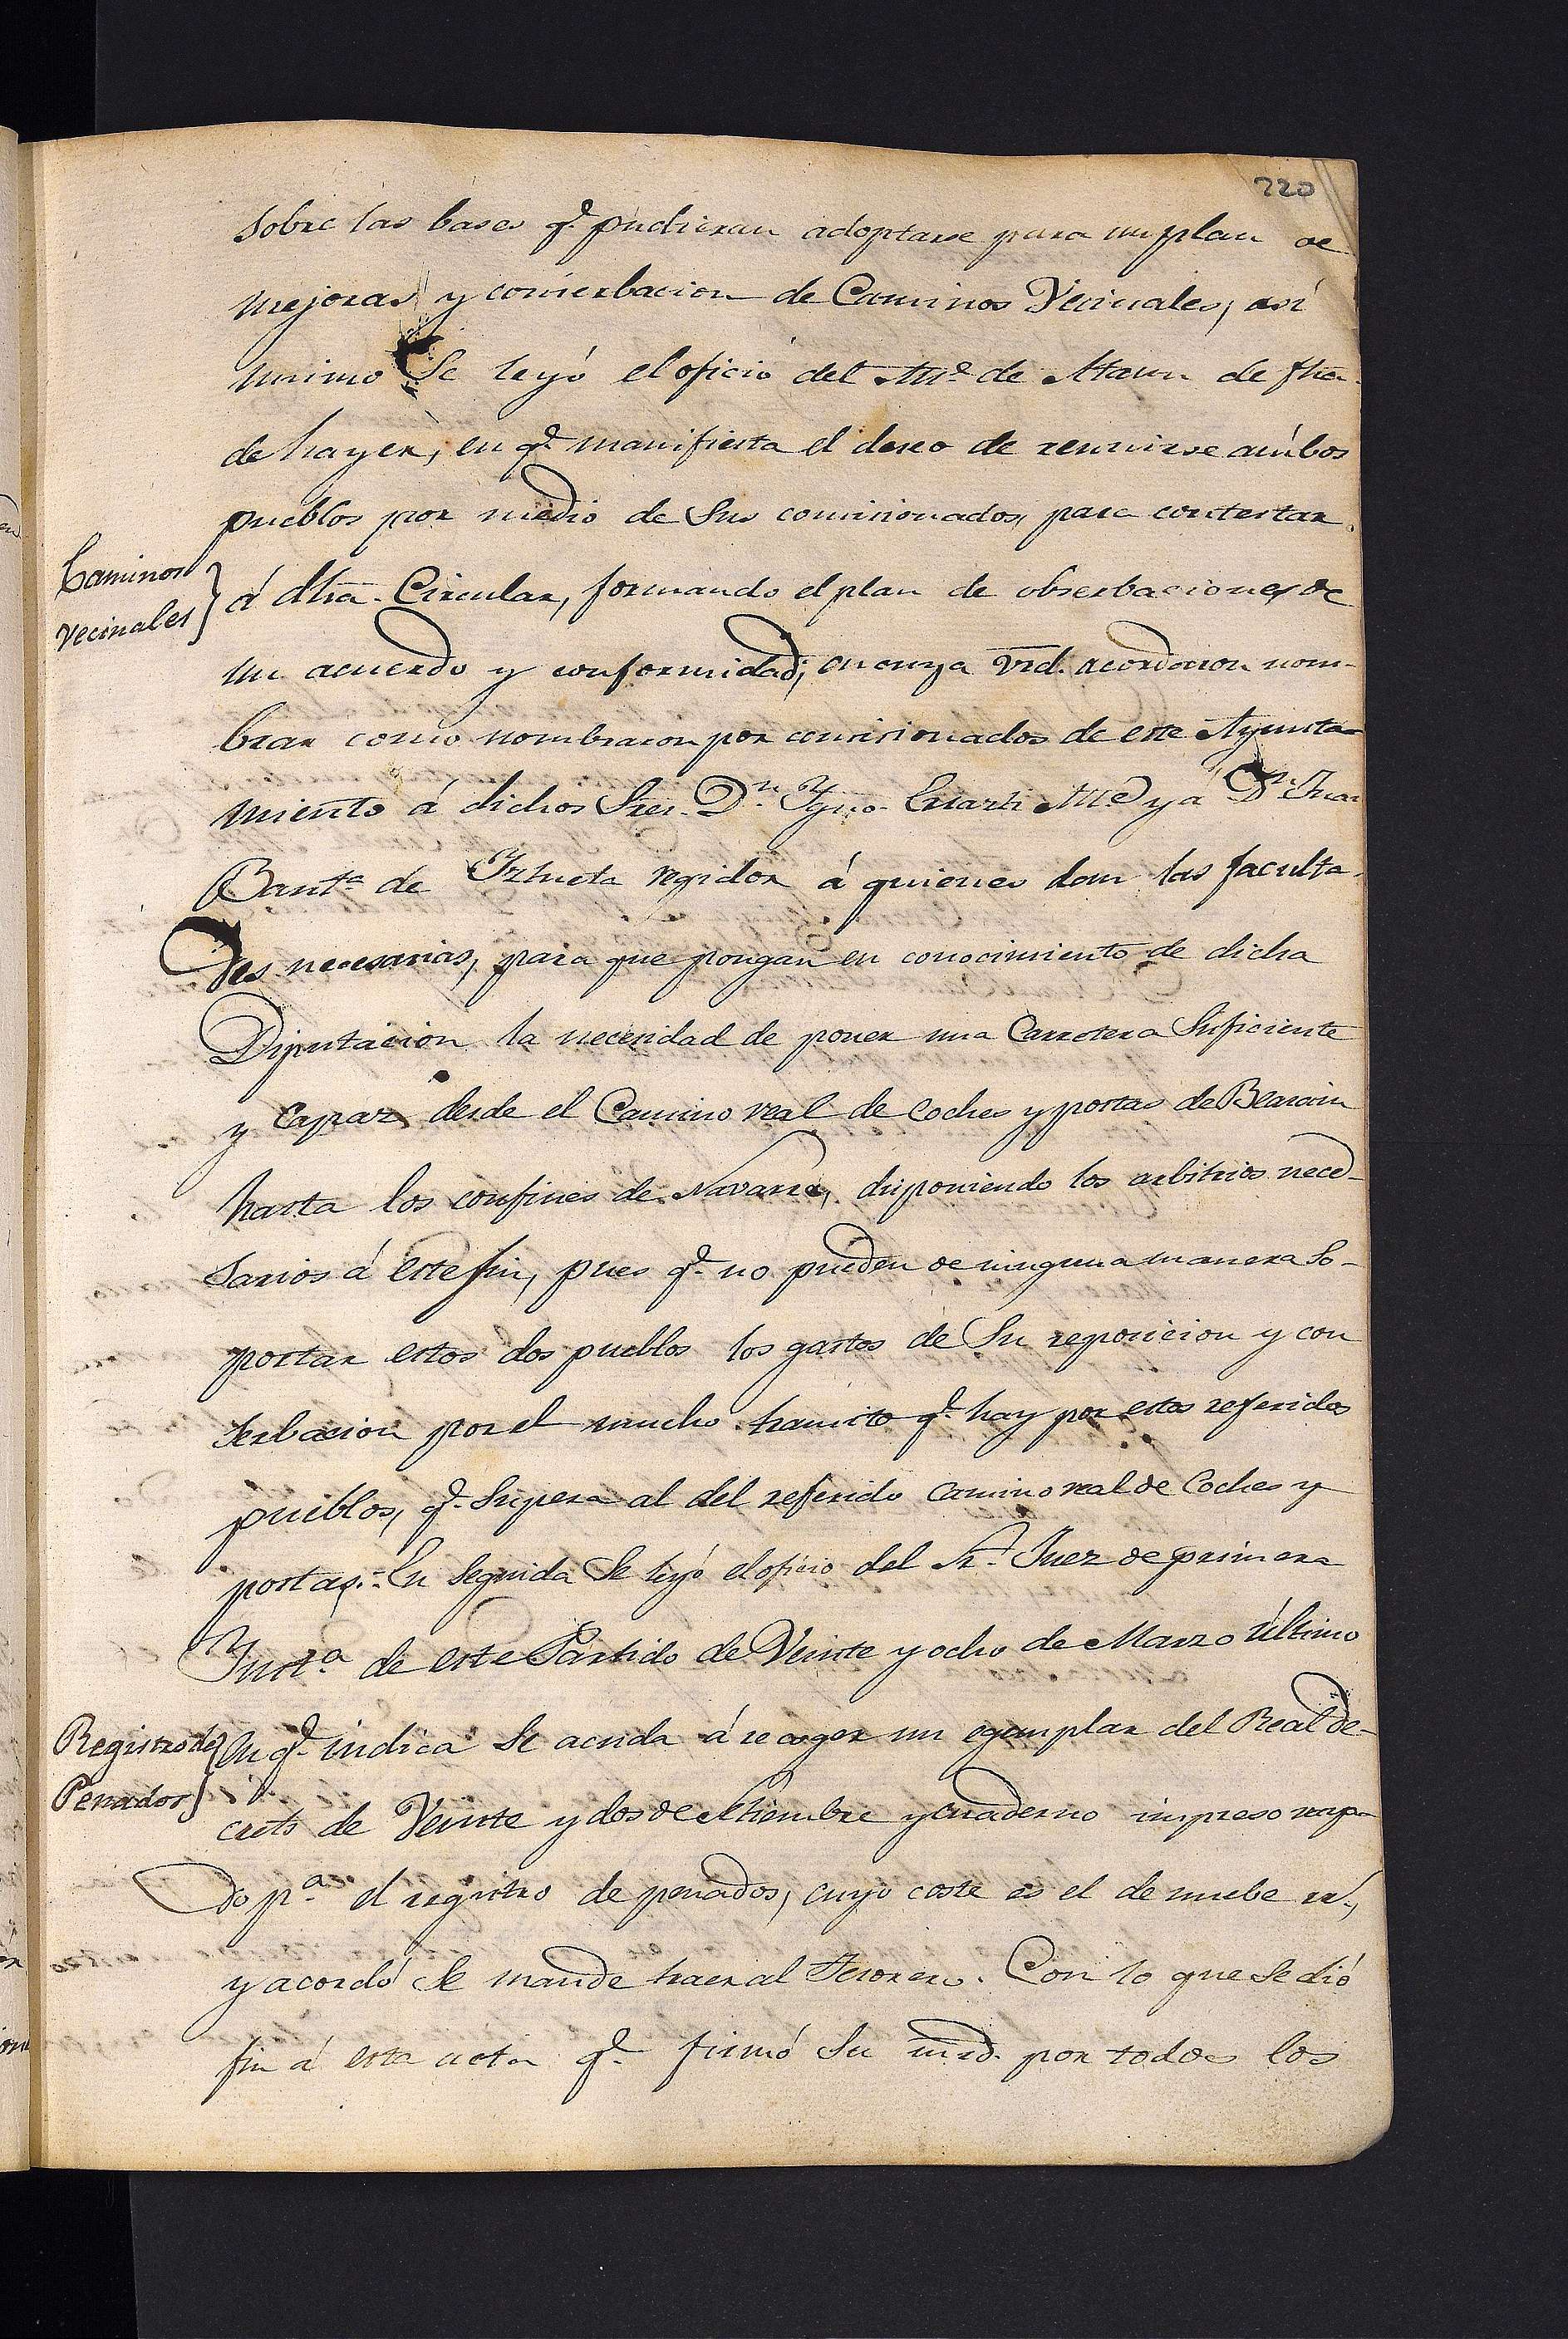 220
sobre las bases q.e pudieran adoptarse para un plan de
mejoras y conserbacion de Caminos Vecinales, así
mismo Se leyó el oficio del Alc.e de Ataun de fha.
de hayer, en q.e manifiesta el deseo de reunirse ambos
pueblos por medio de Sus comisionados, para contestar
Caminos
vecinales
á dha. Circular, formando el plan de obserbaciones de
un acuerdo y conformidad; en cuya vrd. acordaron nom-
brar como nombraron por comisionados de este Ayunta-
miento á dichos Sres. D.n Ygno. Alc.e y á D.n Juan
Baut.a de Iztueta regidor á quienes dan las faculta-
des necesarias, para que pongan en conocimiento de dicha
Diputacion la necesidad de poner una Carretera Suficiente
y Capaz desde el Camino real de Coches y postas de Beasain
hasta los confines de Navarra, disponiendo los arbitrios nece-
sarios á este fin, pues q.e no pueden de ninguna manera so-
portar estos dos pueblos los gastos de Su reposicion y con
serbacion por el mucho transito q.e hay por estos referidos
pueblos, q.e Supera al del referido camino real de Coches y
postas.= En Seguida Se leyó el oficio del Sr. Juez de primera
Inst.a de este Partido de Veinte y ocho de Marzo último
Registro de
Penados
en q.e indica Se acuda á recoger un egemplar del Real de-
creto de Veinte y dos de Setiembre y cuaderno impreso raya
do p.a el registro de penados, cuyo coste es el de nuebe rs.,
y acordó Se mande traer al Tesorero. Con lo que Se dió
fin á esta acta q.e firmó Su mrd. por todos los